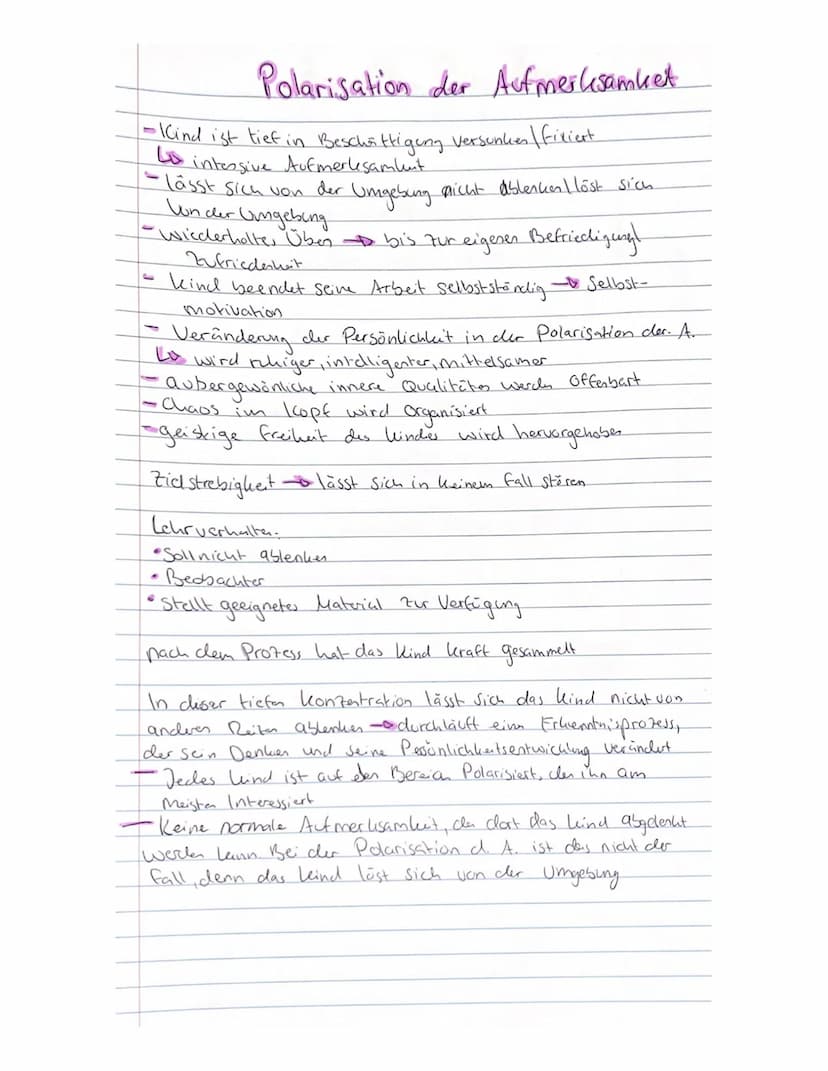 Polarisation der Aufmerksamkeit
- Kind ist tief in Beschäftigung versunken/fixiert
↳ intensive Aufmerksamkeit
- lässt sich von der Umgebung nicht ablenken/löst sich
von der Umgebung
- wiederholtes Üben → bis zur eigenen Befriedigung/
Zufriedenheit
- Kind beendet seine Arbeit selbstständig → Selbst-
motivation
- Veränderung der Persönlichkeit in der Polarisation der. A.
↳ wird ruhiger, intelligenter, mittelsamer
- außergewönliche innere Qualitäten werden Offenbart
- Chaos im Kopf wird organisiert
- geistige Freiheit des Kindes wird hervorgehoben
Zielstrebigkeit → lässt sich in keinem Fall stören
Lehrverhalten:
• Soll nicht ablenken
• Beobachter
• Stellt geeignetes Material zur Verfügung
nach dem Prozess hat das Kind Kraft gesammelt
In dieser tiefen Konzentration lässt sich das Kind nicht von
anderen Reizen ablenken → durchläuft einen Erkenntnisprozess,
der sein Denken und seine Persönlichkeitsentwicklung verändert
- Jedes Kind ist auf den Bereich Polarisiert, der ihn am
Meisten Interessiert
- Keine normale Aufmerksamkeit, da dort das Kind abgelenkt
werden kann. Bei der Polarisation d. A. ist das nicht der
Fall, denn das Kind löst sich von der Umgebung